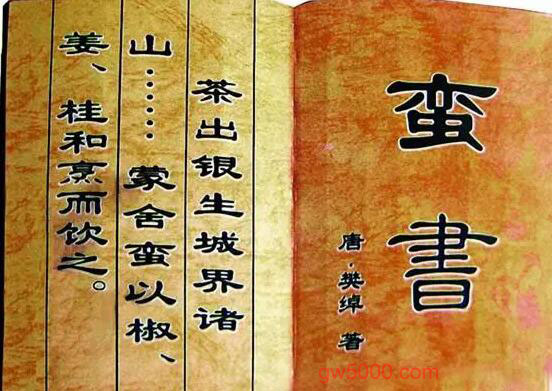 蛮書
唐·樊绰 著
茶出银生城界诸
山……蒙舍蛮以椒、
姜、桂和烹而饮之。
gw5000.com